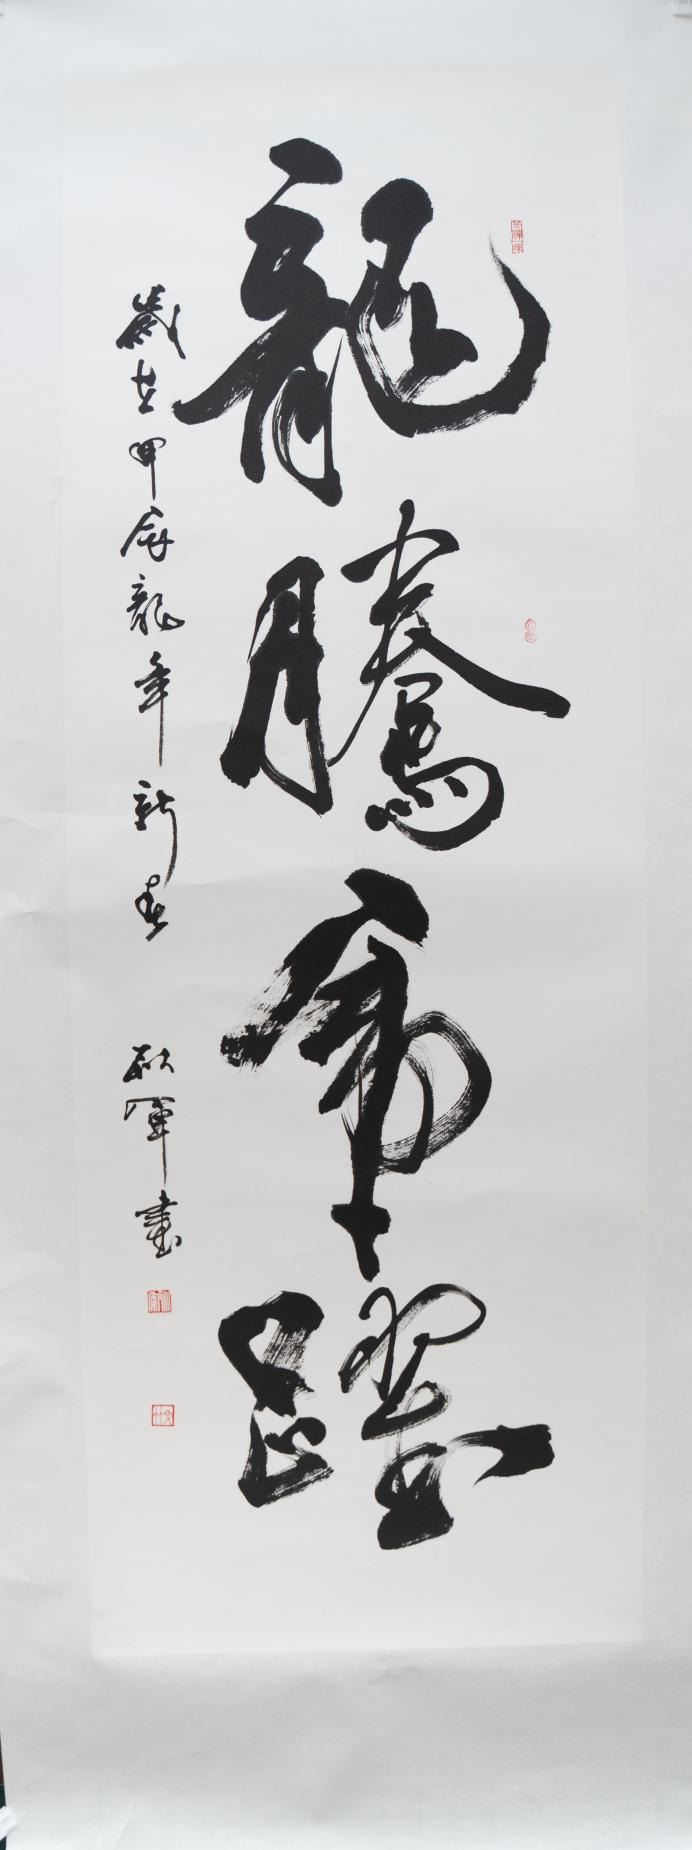 龍騰虎躍
歲在甲辰龍年新春
軍書